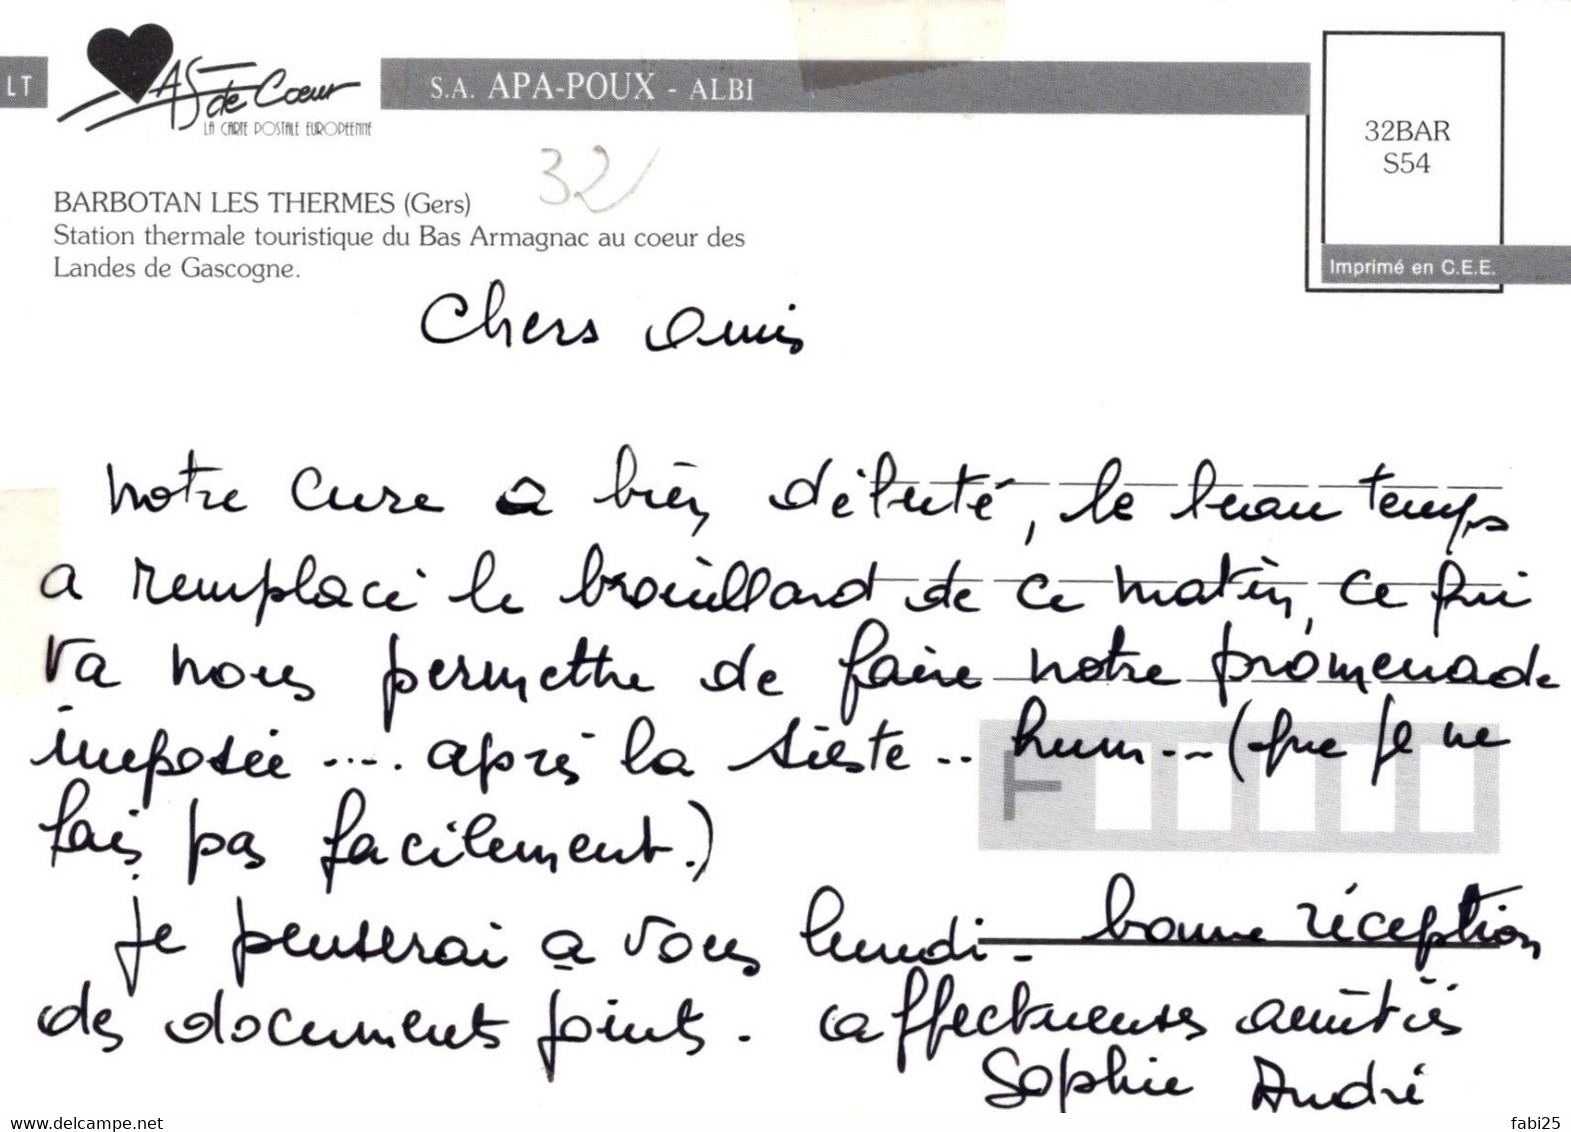 LT
As de Coeur
LA CARTE POSTALE EUROPEENNE
S.A. APA-POUX - ALBI
32BAR
S54
Imprimé en C.E.E.
32
BARBOTAN LES THERMES (Gers)
Station thermale touristique du Bas Armagnac au coeur des
Landes de Gascogne.
Chers amis
notre cure a bien débuté, le beau temps
a remplacé le brouillard de ce matin, ce qui
va nous permettre de faire notre promenade
imposée .... après la sieste .. hum .. (que je ne
fais pas facilement.)
je penserai à vous lundi - bonne réception
des documents joints. affectueuses amitiés
Sophie André
www.delcampe.net
fabi25